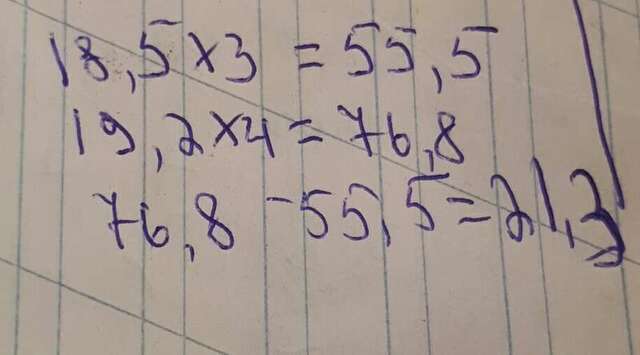 18,5×3 = 55,5
19,2×4 = 76,8
76,8 - 55,5 = 21,3